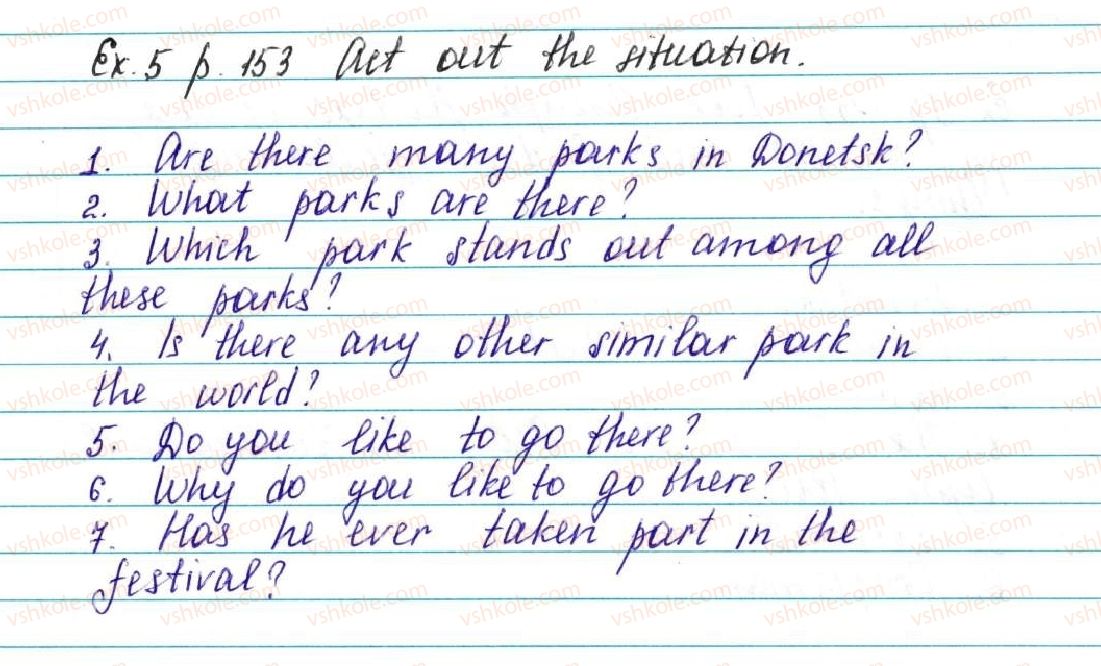 Ex. 5 p. 153 Act out the situation.
1. Are there many parks in Donetsk?
2. What parks are there?
3. Which park stands out among all
these parks?
4. Is there any other similar park in
the world?
5. Do you like to go there?
6. Why do you like to go there?
7. Has he ever taken part in the
festival?